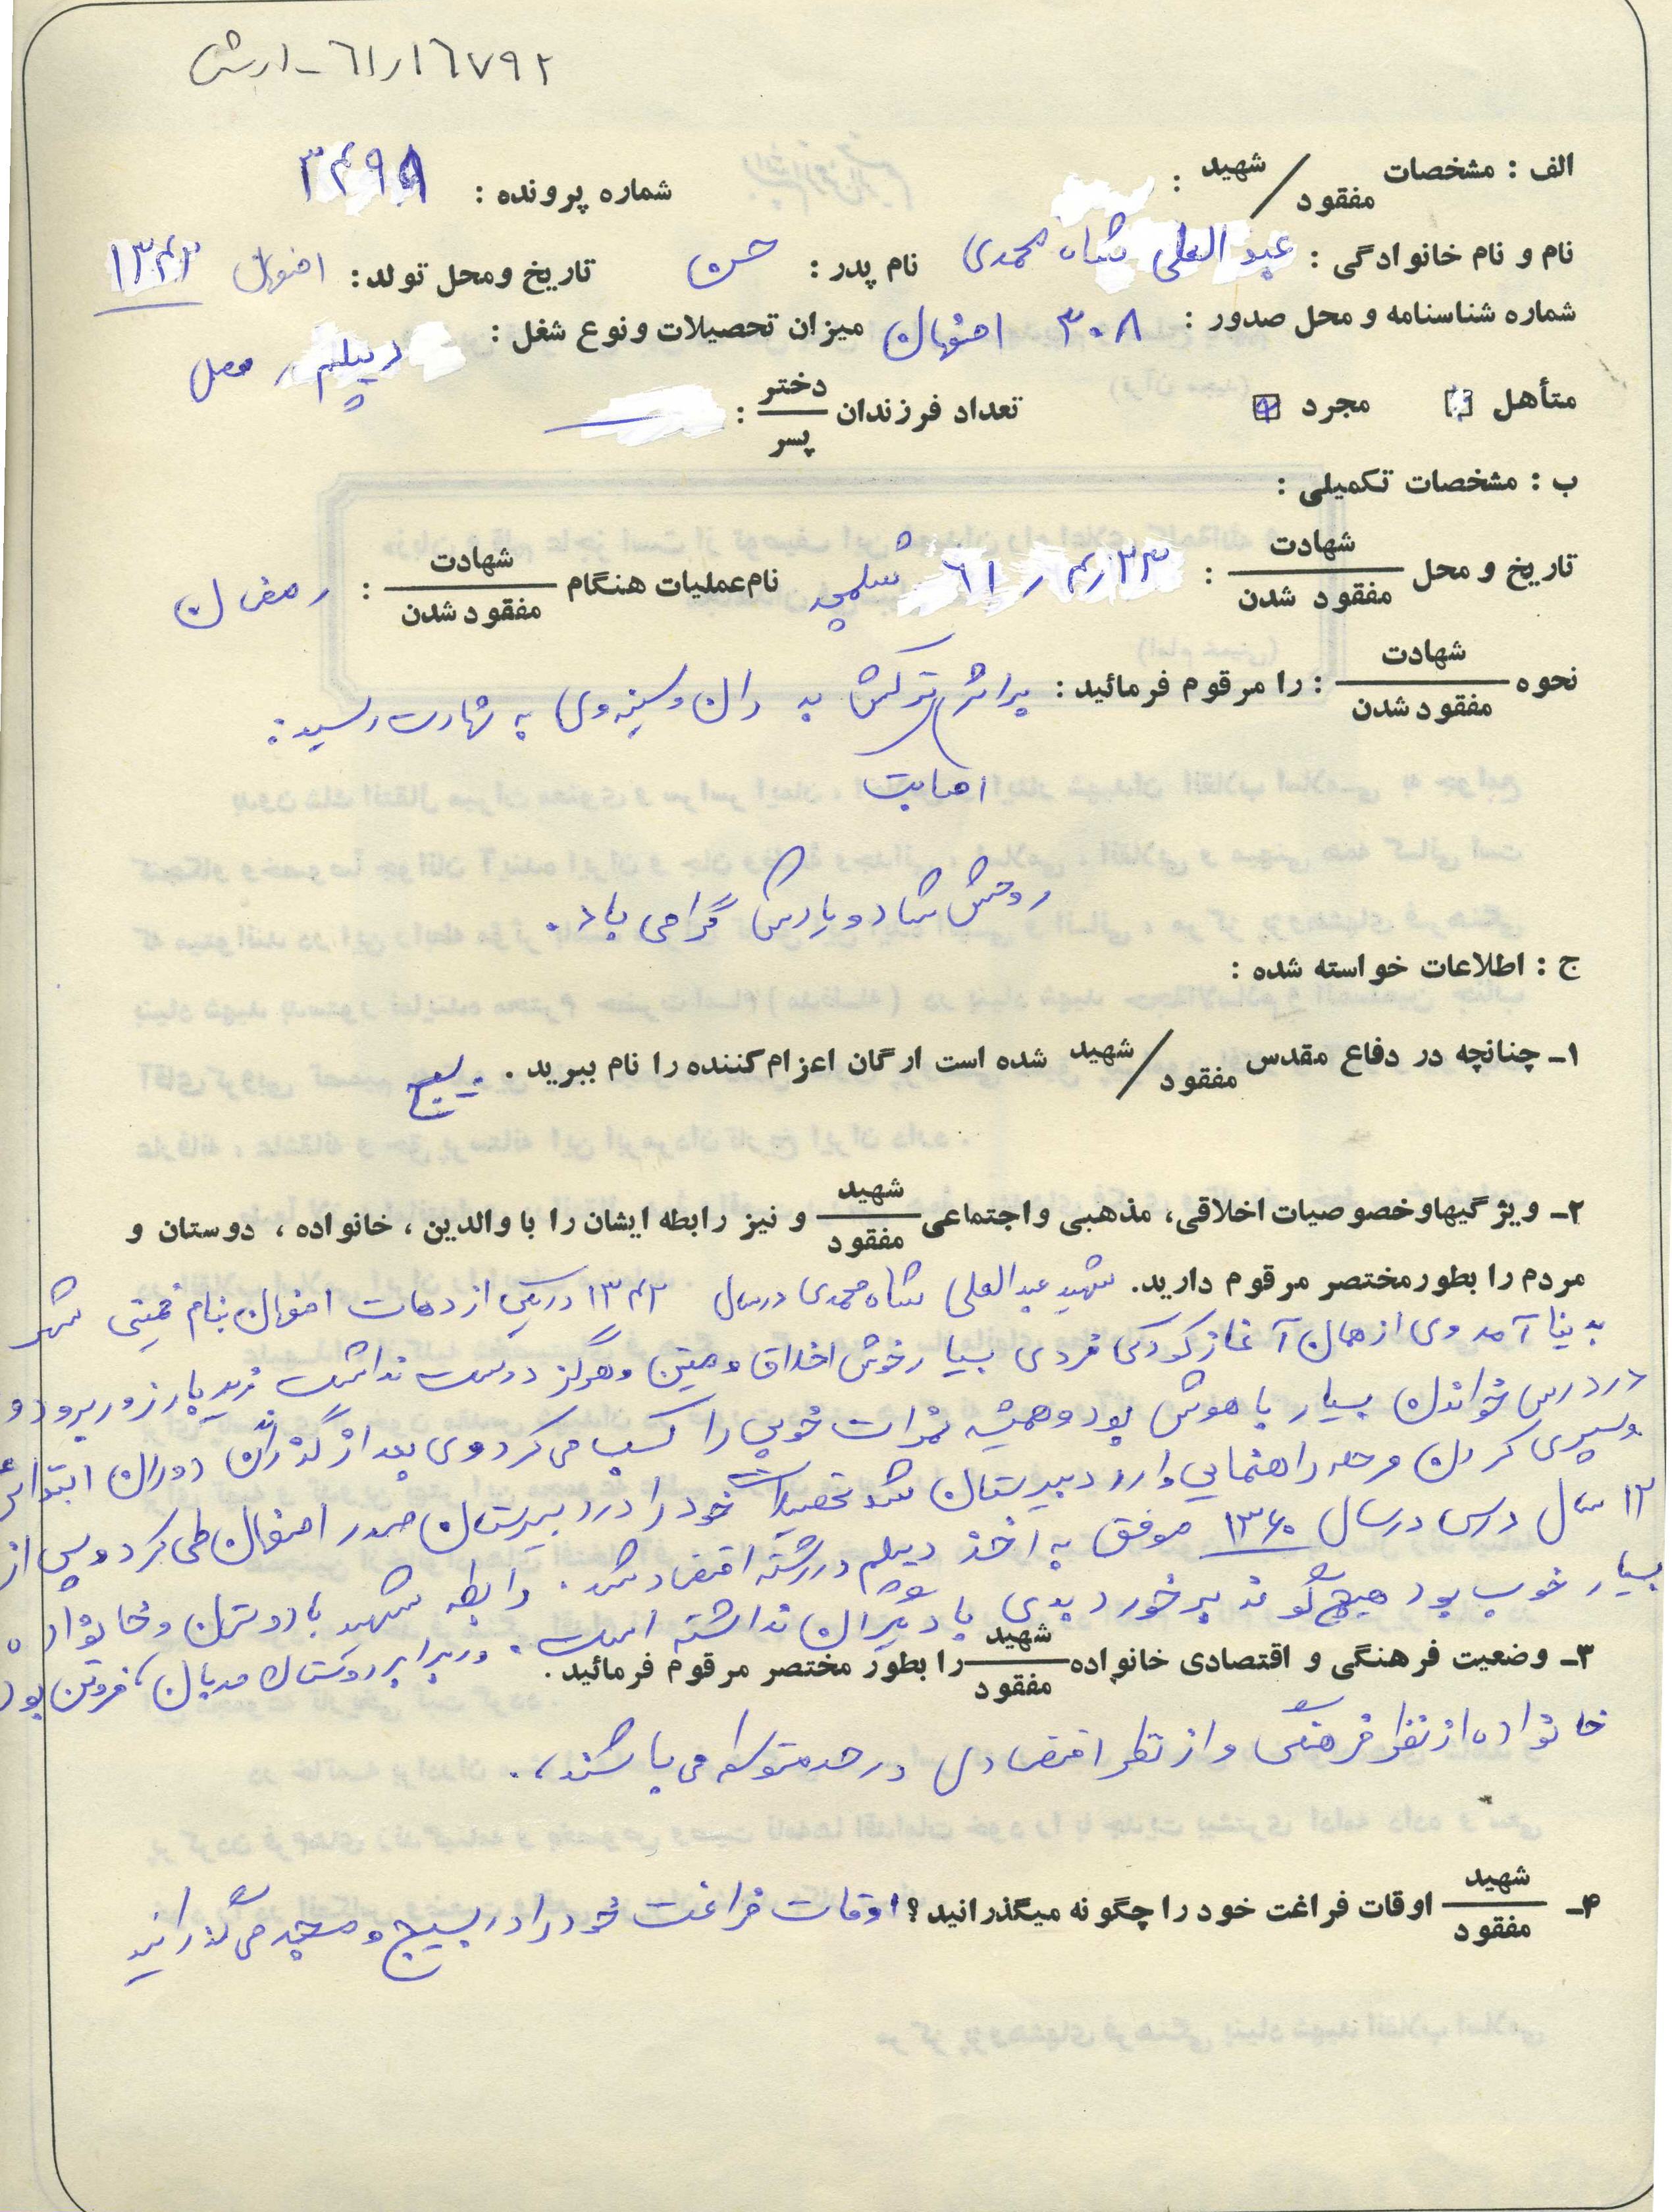 ۶۱/۱۶۷۹۲ - ارتش
الف : مشخصات شهید / مفقود :
شماره پرونده : ۳۴۹۸
نام و نام خانوادگی : عبدالعلی شاه محمدی نام پدر : حسن تاریخ ومحل تولد : اصفهان ۱۳۴۲
شماره شناسنامه و محل صدور : ۳۰۸ اصفهان میزان تحصیلات ونوع شغل : دیپلم، محصل
متأهل مجرد تعداد فرزندان دختر / پسر :
ب : مشخصات تکمیلی :
تاریخ و محل شهادت / مفقود شدن : ۶۱/۴/۲۳ شلمچه نام عملیات هنگام شهادت / مفقود شدن : رمضان
نحوه شهادت / مفقود شدن : را مرقوم فرمائید : براثر ترکش به ران وسینه وی به شهادت رسید :
اصابت
روحش شاد و یادش گرامی باد .
ج : اطلاعات خواسته شده :
۱- چنانچه در دفاع مقدس شهید / مفقود شده است ارگان اعزام کننده را نام ببرید . بسیج
۲- ویژگیهاوخصوصیات اخلاقی، مذهبی واجتماعی شهید / مفقود و نیز رابطه ایشان را با والدین ، خانواده ، دوستان و
مردم را بطور مختصر مرقوم دارید. شهید عبدالعلی شاه محمدی درسال ۱۳۴۲ دریکی از دهات اصفهان بنام خمینی شهر
بدنیا آمد وی از همان آغاز کودکی فردی بسیار خوش اخلاق و متین وهرگز دوست نداشت
در درس خواندن بسیار باهوش بود وهمیشه نمرات خوبی را کسب می کرد وی بعد از گذراندن دوران ابتدائی
وسپری کردن مرحله راهنمایی وارد دبیرستان شد تحصیلات خود را در دبیرستان صدر اصفهان طی کرد و پس از
۱۲ سال درس درسال ۱۳۶۰ موفق به اخذ دیپلم در رشته اقتصاد شد . رابطه شهید با دوستان و خانواده
بسیار خوب بود هیچ گونه برخورد بدی با دیگران نداشته است . و در برابر دوستان مهربان ، فروتن بود
۳- وضعیت فرهنگی و اقتصادی خانواده شهید / مفقود را بطور مختصر مرقوم فرمائید .
خانواده از نظر فرهنگی و از نظر اقتصادی در حد متوسط می باشند .
۴- شهید / مفقود اوقات فراغت خود را چگونه میگذرانید ؟ اوقات فراغت خود را در بسیج و مسجد می گذرانید